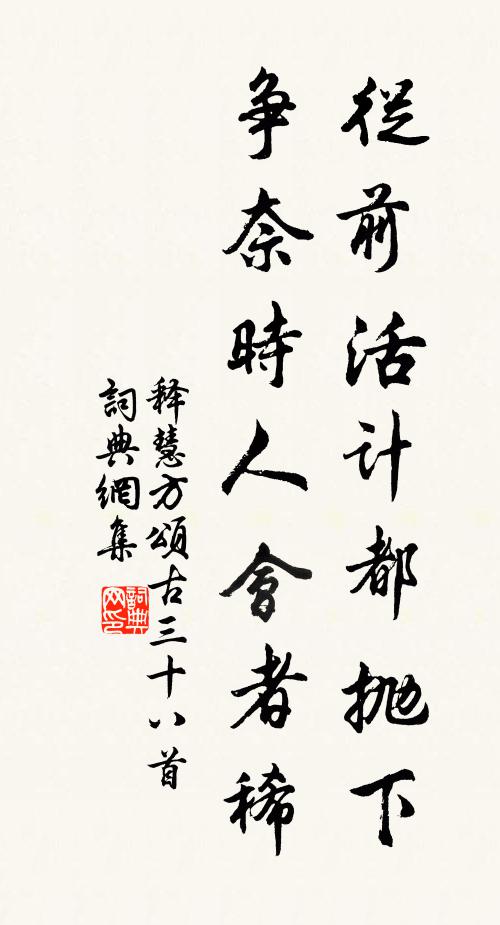 從前活计都抛下
争奈時人會者稀
释慧方頌古三十八首
詞典網集
詞典
网印